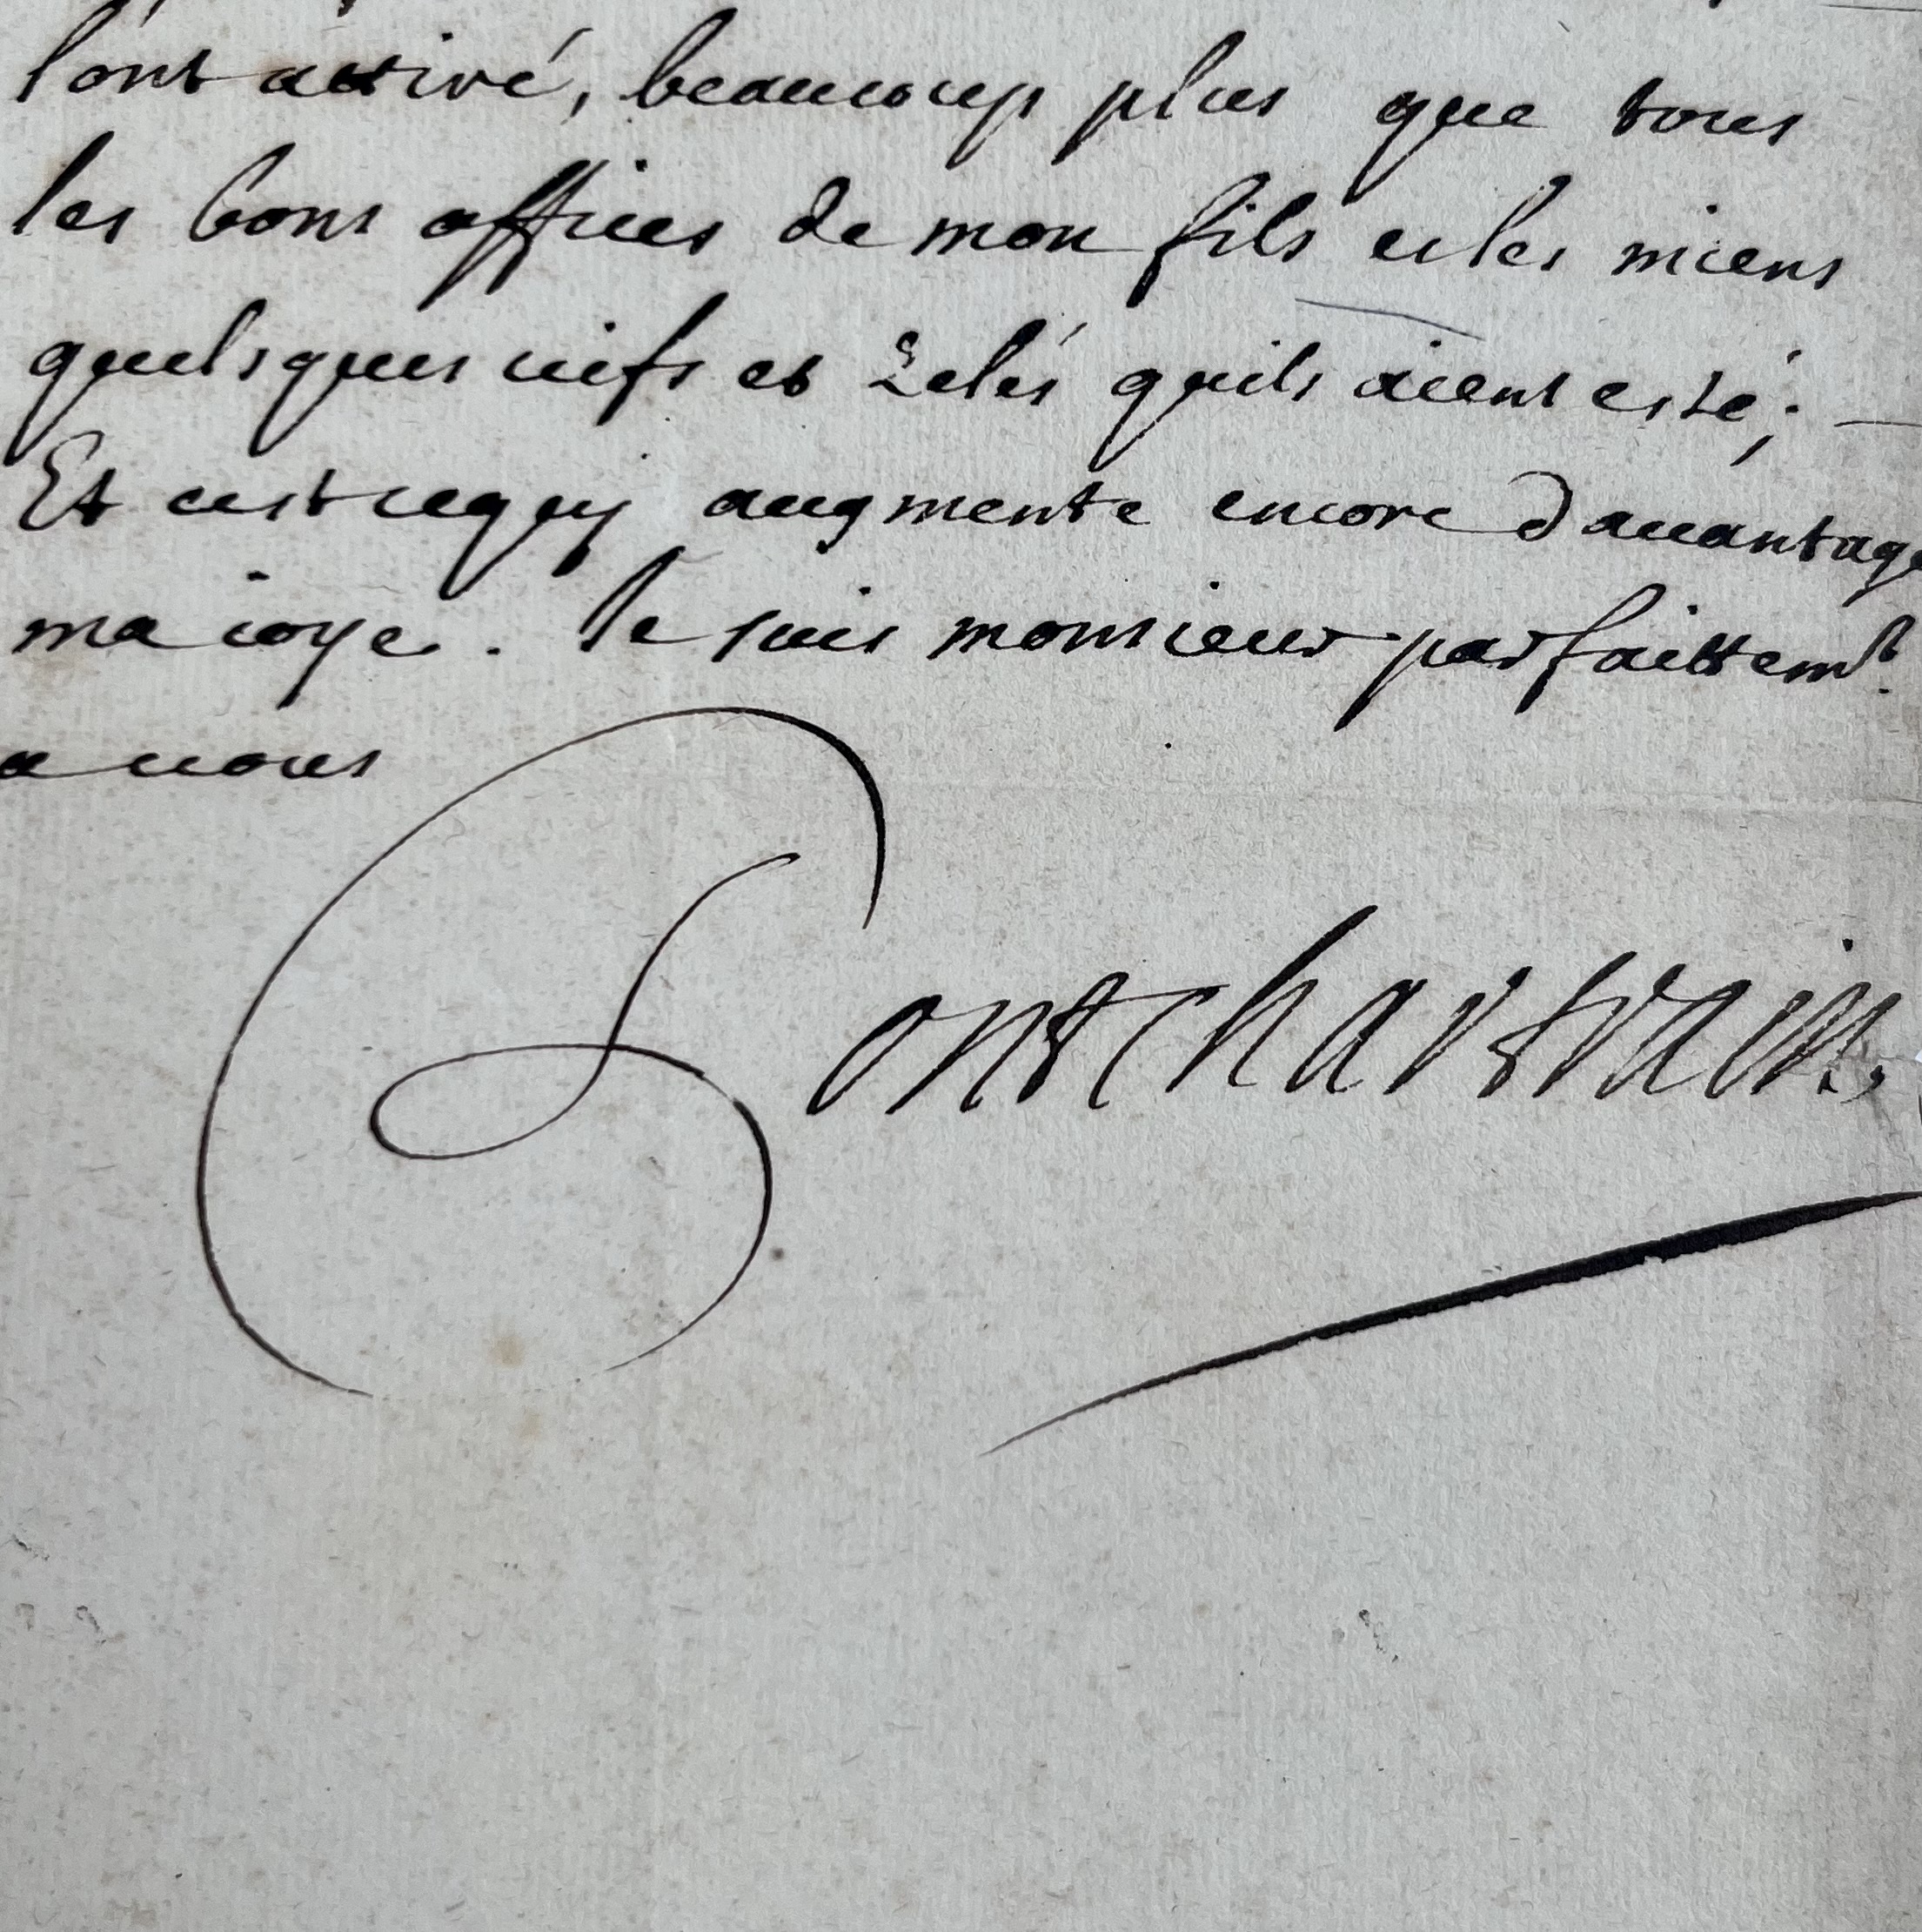 lont attiré, beaucoup plus que tous
les bons offices de mon fils et les miens
quelsques vifs et zelés quils aient esté;
Et cest ce qui augmente encore davantage
ma ioye. Je suis monsieur parfaittemt.
a vous
Pontchartrain.